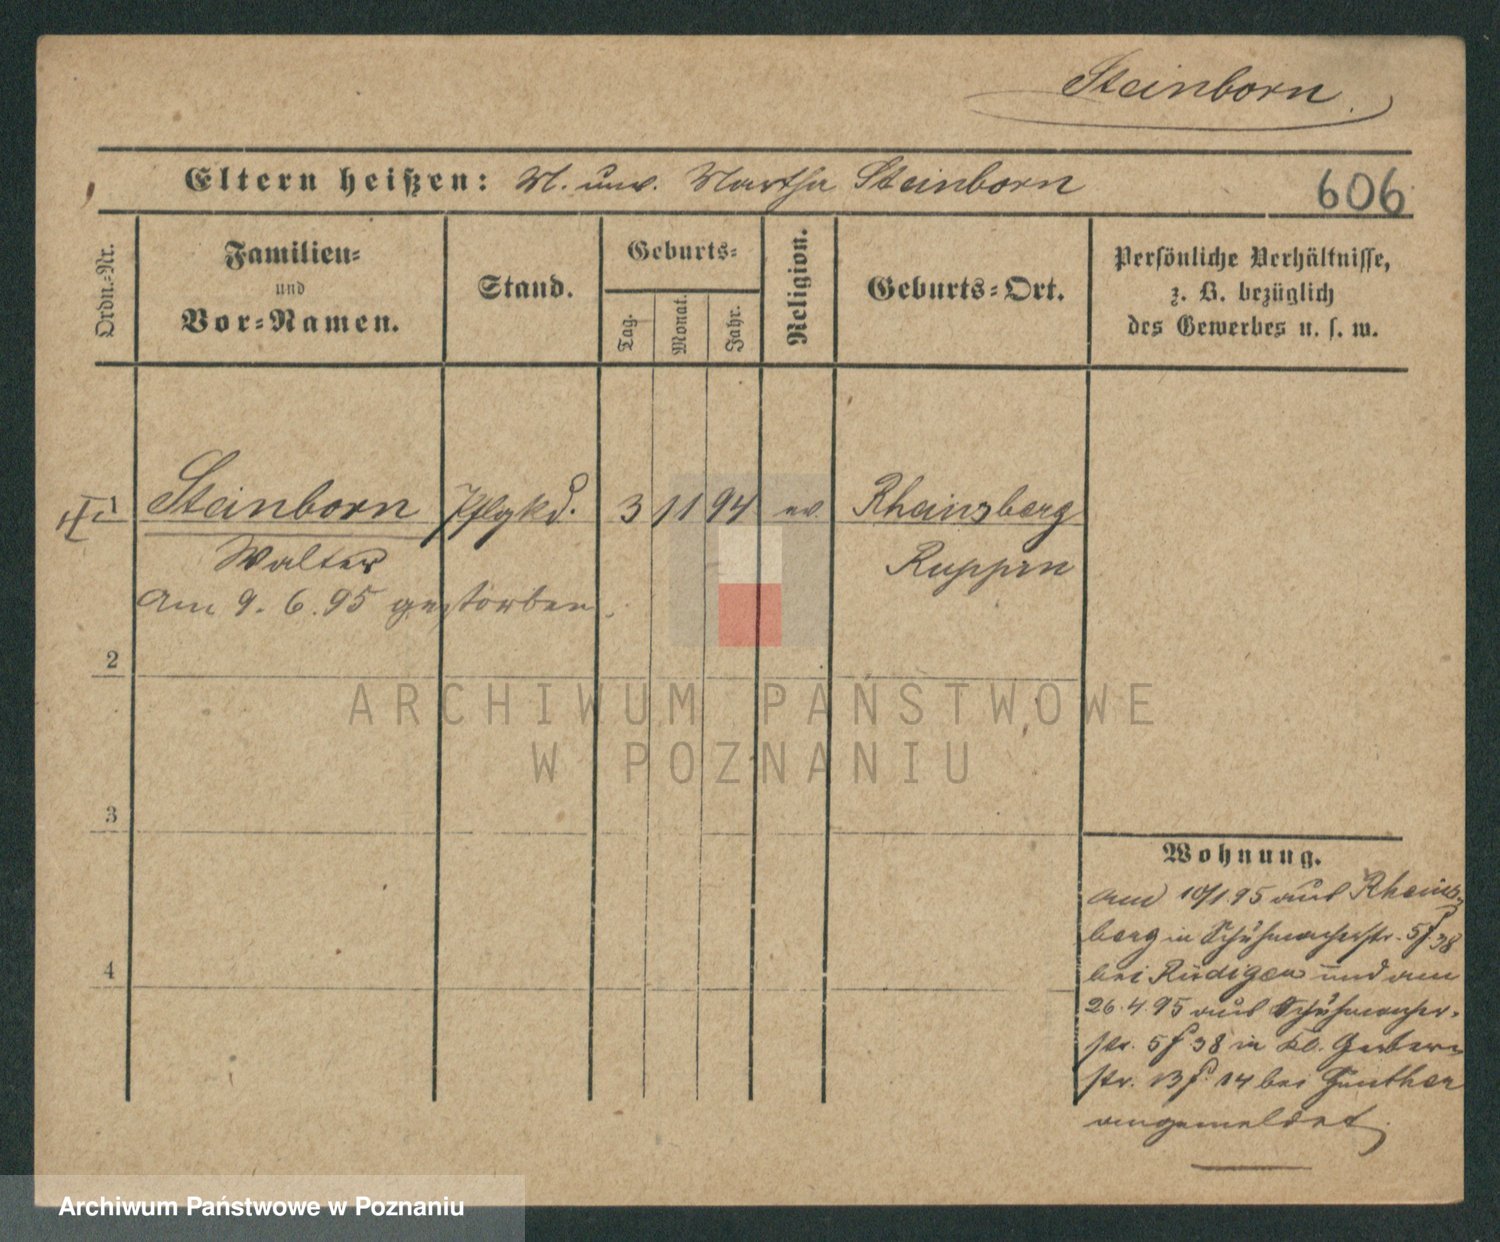 Steinborn.
Eltern heißen: M. unv. Martha Steinborn
606
Ordn.-Nr.
Familien-
und
Vor-Namen.
Stand.
Geburts-
Tag.
Monat.
Jahr.
Religion.
Geburts-Ort.
Persönliche Verhältnisse,
z. B. bezüglich
des Gewerbes u. s. w.
1 Steinborn Pflgkd. 3 11 94 ev. Rheinsberg
Walter Ruppin
am 9.6.95 gestorben.
2
3
4
Wohnung.
am 10/1.95 aus Rheins-
berg in Schuhmacherstr. 5 38
bei Rüdiger und am
26.4.95 aus Schuhmacher-
str. 5 38 in Kl. Gerber-
str. 13 14 bei Günther
angemeldet
ARCHIWUM PAŃSTWOWE
W POZNANIU
Archiwum Państwowe w Poznaniu